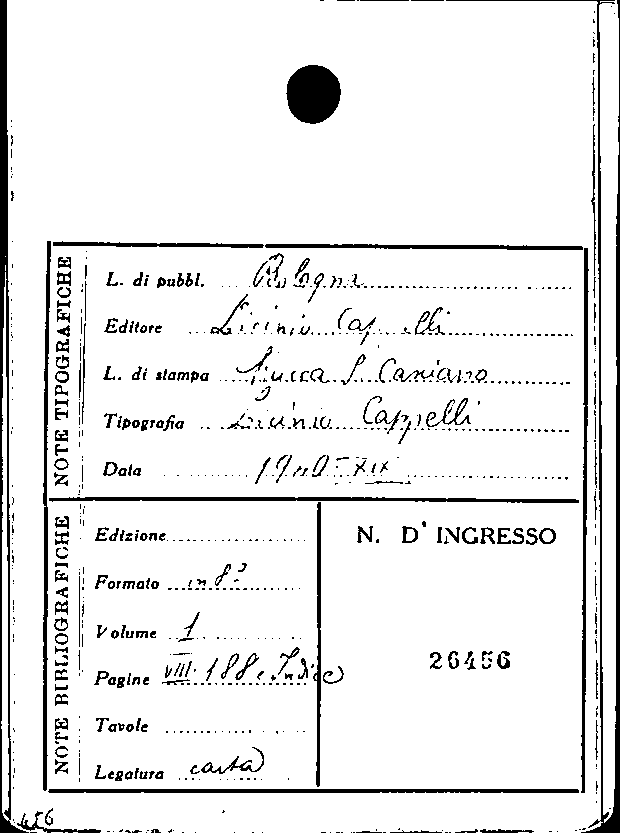 NOTE TIPOGRAFICHE
L. di pubbl. Bologna
Editore Licinio Cappelli
L. di stampa Rocca S. Casciano
Tipografia Licinio Cappelli
Data 1940-XIX
NOTE BIBLIOGRAFICHE
Edizione
Formato in 8º
Volume 1
Pagine VIII-188 e Indice
Tavole
Legatura carta
N. D'INGRESSO
26456
456